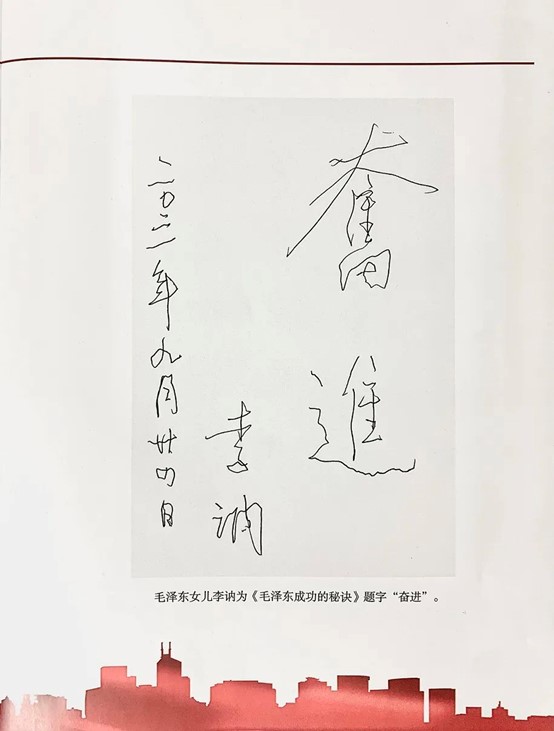 奮
進
李讷
二〇二一年九月廿四日
毛泽东女儿李讷为《毛泽东成功的秘诀》题字“奋进”。